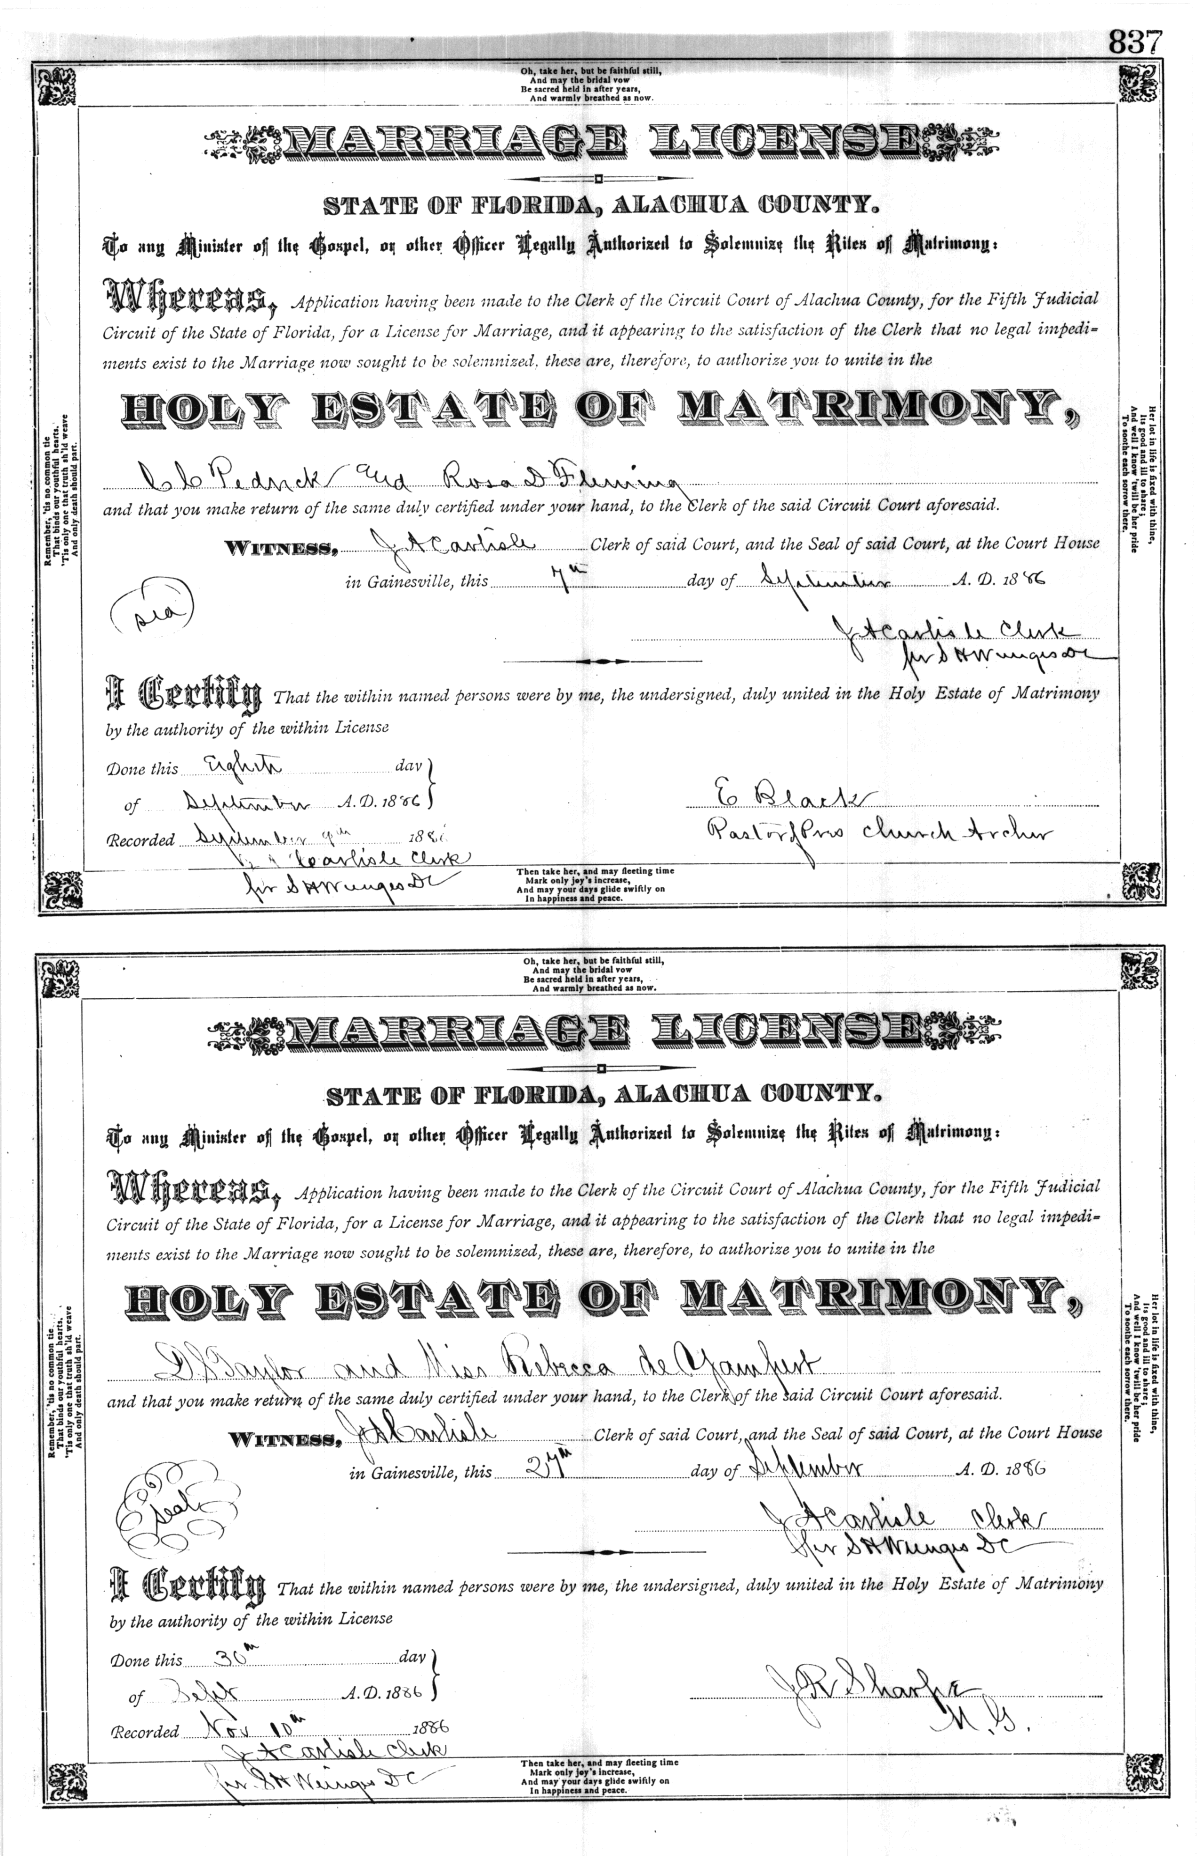 837
Oh, take her, but be faithful still,
And may the bridal vow
Be sacred held in after years,
And warmly breathed as now.
MARRIAGE LICENSE
STATE OF FLORIDA, ALACHUA COUNTY.
To any Minister of the Gospel, or other Officer Legally Authorized to Solemnize the Rites of Matrimony:
Whereas, Application having been made to the Clerk of the Circuit Court of Alachua County, for the Fifth Judicial
Circuit of the State of Florida, for a License for Marriage, and it appearing to the satisfaction of the Clerk that no legal impedi-
ments exist to the Marriage now sought to be solemnized, these are, therefore, to authorize you to unite in the
HOLY ESTATE OF MATRIMONY,
C C Pedrick and Rosa D Fleming
and that you make return of the same duly certified under your hand, to the Clerk of the said Circuit Court aforesaid.
WITNESS, J A Carlisle Clerk of said Court, and the Seal of said Court, at the Court House
in Gainesville, this 7th day of September A. D. 1886
J A Carlisle Clerk
for S H Wienges DC
I Certify That the within named persons were by me, the undersigned, duly united in the Holy Estate of Matrimony
by the authority of the within License
Done this Eighth day
of September A. D. 1886
E Black
Recorded September 9th 188
Pastor Church Archer
J A Carlisle Clerk
for S H Wienges DC
Remember, 'tis no common tie
That binds our youthful hearts,
'Tis only one that truth sh'ld weave
And only death should part.
Her lot in life is fixed with thine,
Its good and ill to share;
And well I know 'twill be her pride
To soothe each sorrow there.
Then take her, and may fleeting time
Mark only joy's increase,
And may your days glide swiftly on
In happiness and peace.
Oh, take her, but be faithful still,
And may the bridal vow
Be sacred held in after years,
And warmly breathed as now.
MARRIAGE LICENSE
STATE OF FLORIDA, ALACHUA COUNTY.
To any Minister of the Gospel, or other Officer Legally Authorized to Solemnize the Rites of Matrimony:
Whereas, Application having been made to the Clerk of the Circuit Court of Alachua County, for the Fifth Judicial
Circuit of the State of Florida, for a License for Marriage, and it appearing to the satisfaction of the Clerk that no legal impedi-
ments exist to the Marriage now sought to be solemnized, these are, therefore, to authorize you to unite in the
HOLY ESTATE OF MATRIMONY,
D S Taylor and Miss Rebecca de Yampert
and that you make return of the same duly certified under your hand, to the Clerk of the said Circuit Court aforesaid.
WITNESS, J A Carlisle Clerk of said Court, and the Seal of said Court, at the Court House
in Gainesville, this 27th day of September A. D. 1886
Seal
J A Carlisle Clerk
for S H Wienges DC
I Certify That the within named persons were by me, the undersigned, duly united in the Holy Estate of Matrimony
by the authority of the within License
Done this 30th day
of Sept A. D. 1886
J R Sharpe
M. G.
Recorded Nov 10th 1886
J A Carlisle Clerk
for S H Wienges DC
Remember, 'tis no common tie
That binds our youthful hearts,
'Tis only one that truth sh'ld weave
And only death should part.
Her lot in life is fixed with thine,
Its good and ill to share;
And well I know 'twill be her pride
To soothe each sorrow there.
Then take her, and may fleeting time
Mark only joy's increase,
And may your days glide swiftly on
In happiness and peace.